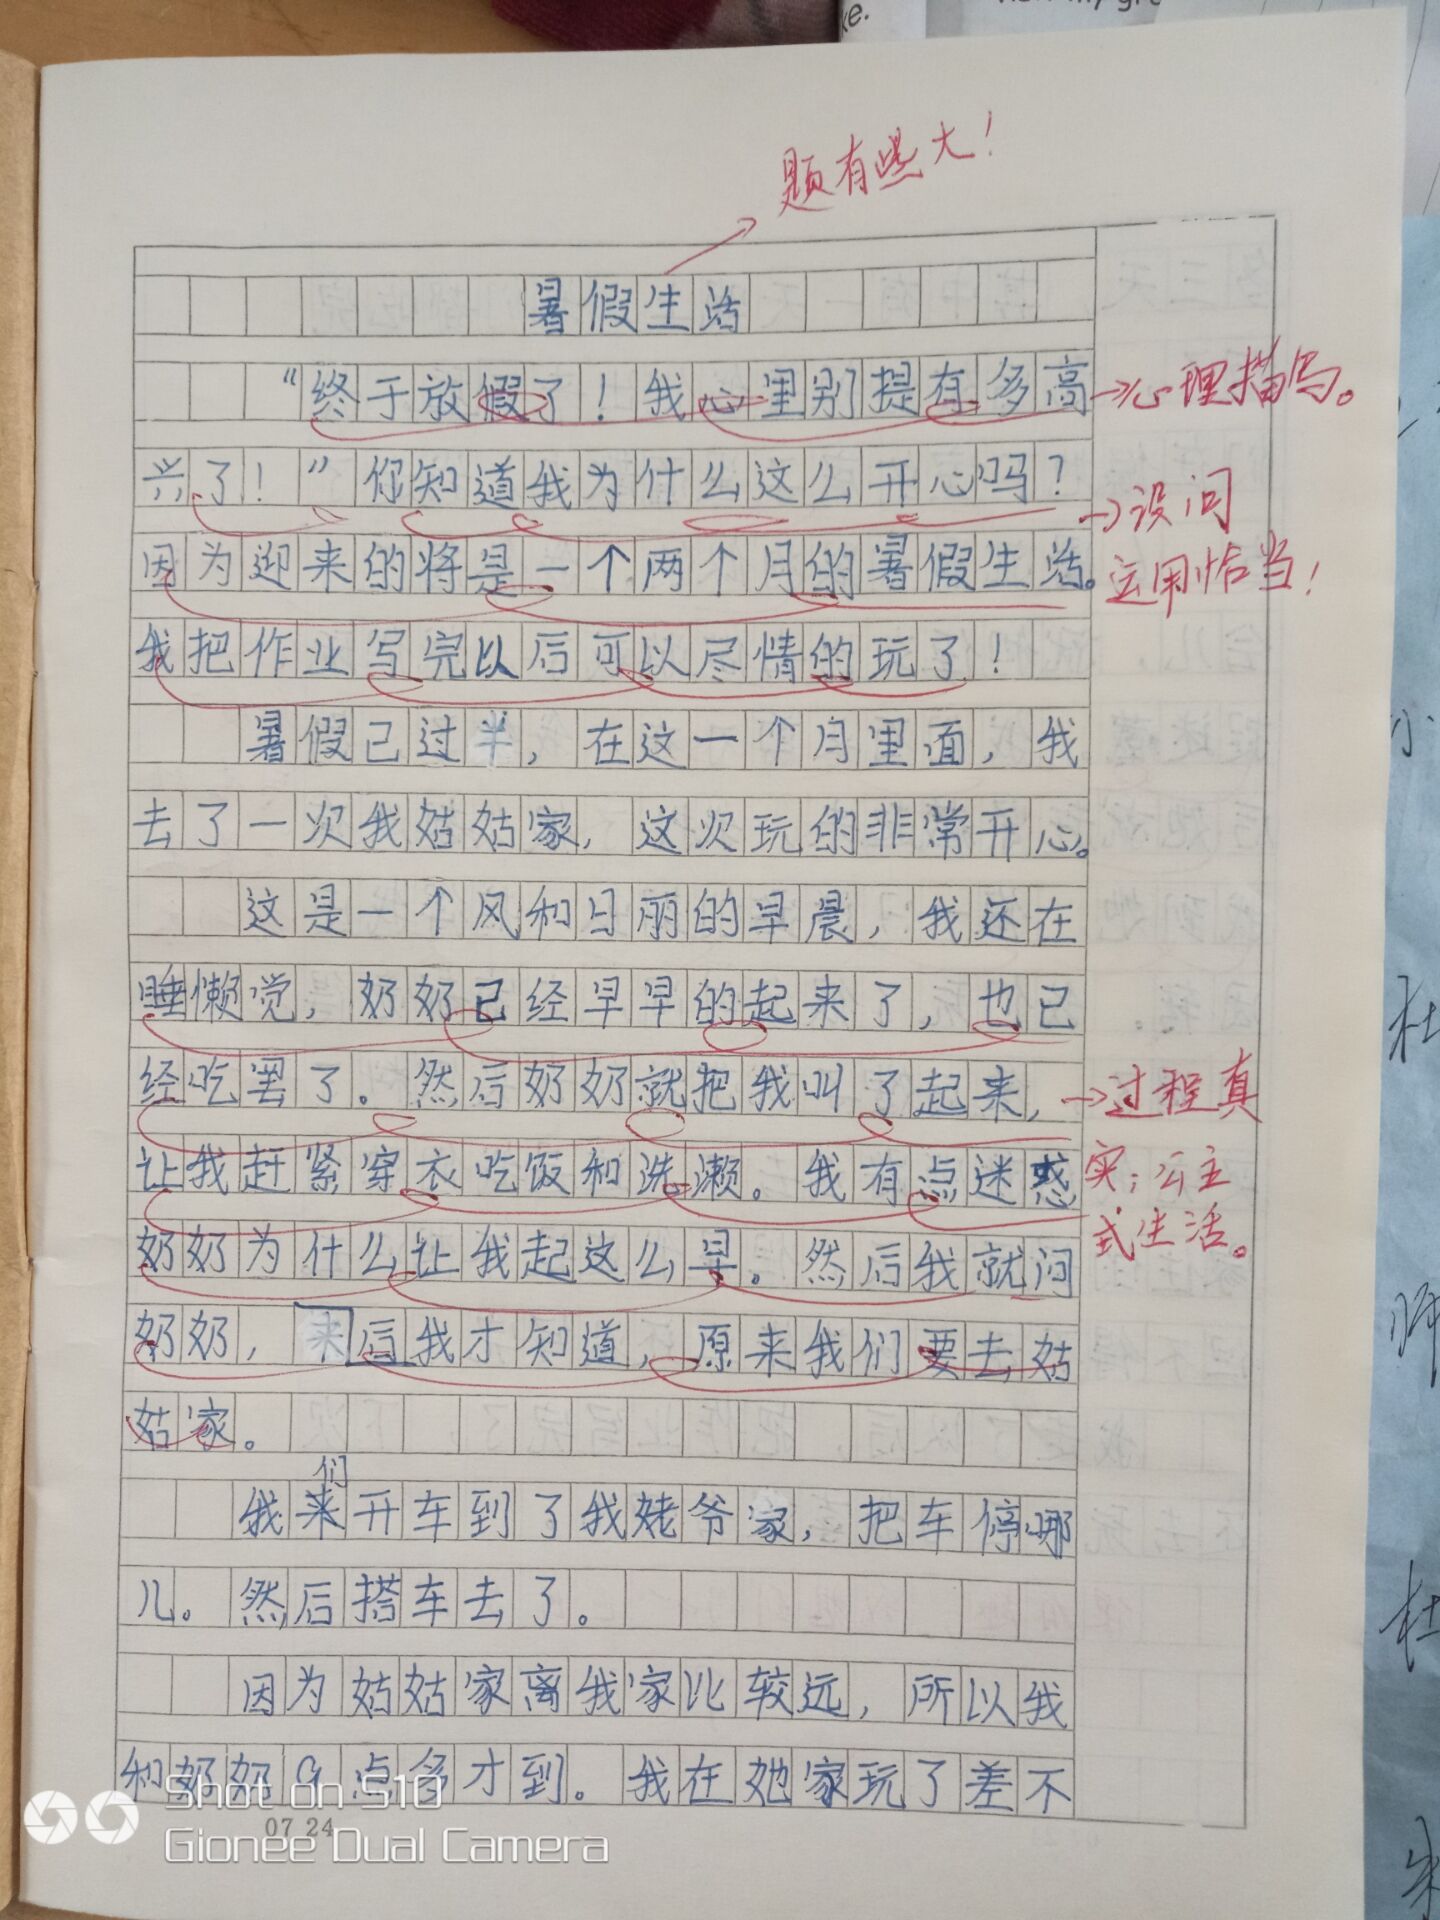 ke.
题有些大！
暑假生活
“终于放假了！我心里别提有多高
→心理描写。
兴了！”你知道我为什么这么开心吗？
→设问
因为迎来的将是一个两个月的暑假生活。
运用恰当！
我把作业写完以后可以尽情的玩了！
暑假已过半，在这一个月里面，我
去了一次我姑姑家，这次玩的非常开心。
这是一个风和日丽的早晨，我还在
睡懒觉，奶奶已经早早的起来了，也已
经吃罢了。然后奶奶就把我叫了起来，
→过程真
让我赶紧穿衣吃饭和洗濑。我有点迷惑
实；公主
奶奶为什么让我起这么早。然后我就问
式生活。
奶奶，来后我才知道，原来我们要去姑
姑家。
们
我来开车到了我姥爷家，把车停哪
儿。然后搭车去了。
因为姑姑家离我家比较远，所以我
和奶奶9点多才到。我在她家玩了差不
Shot on S10
07 24
Gionee Dual Camera